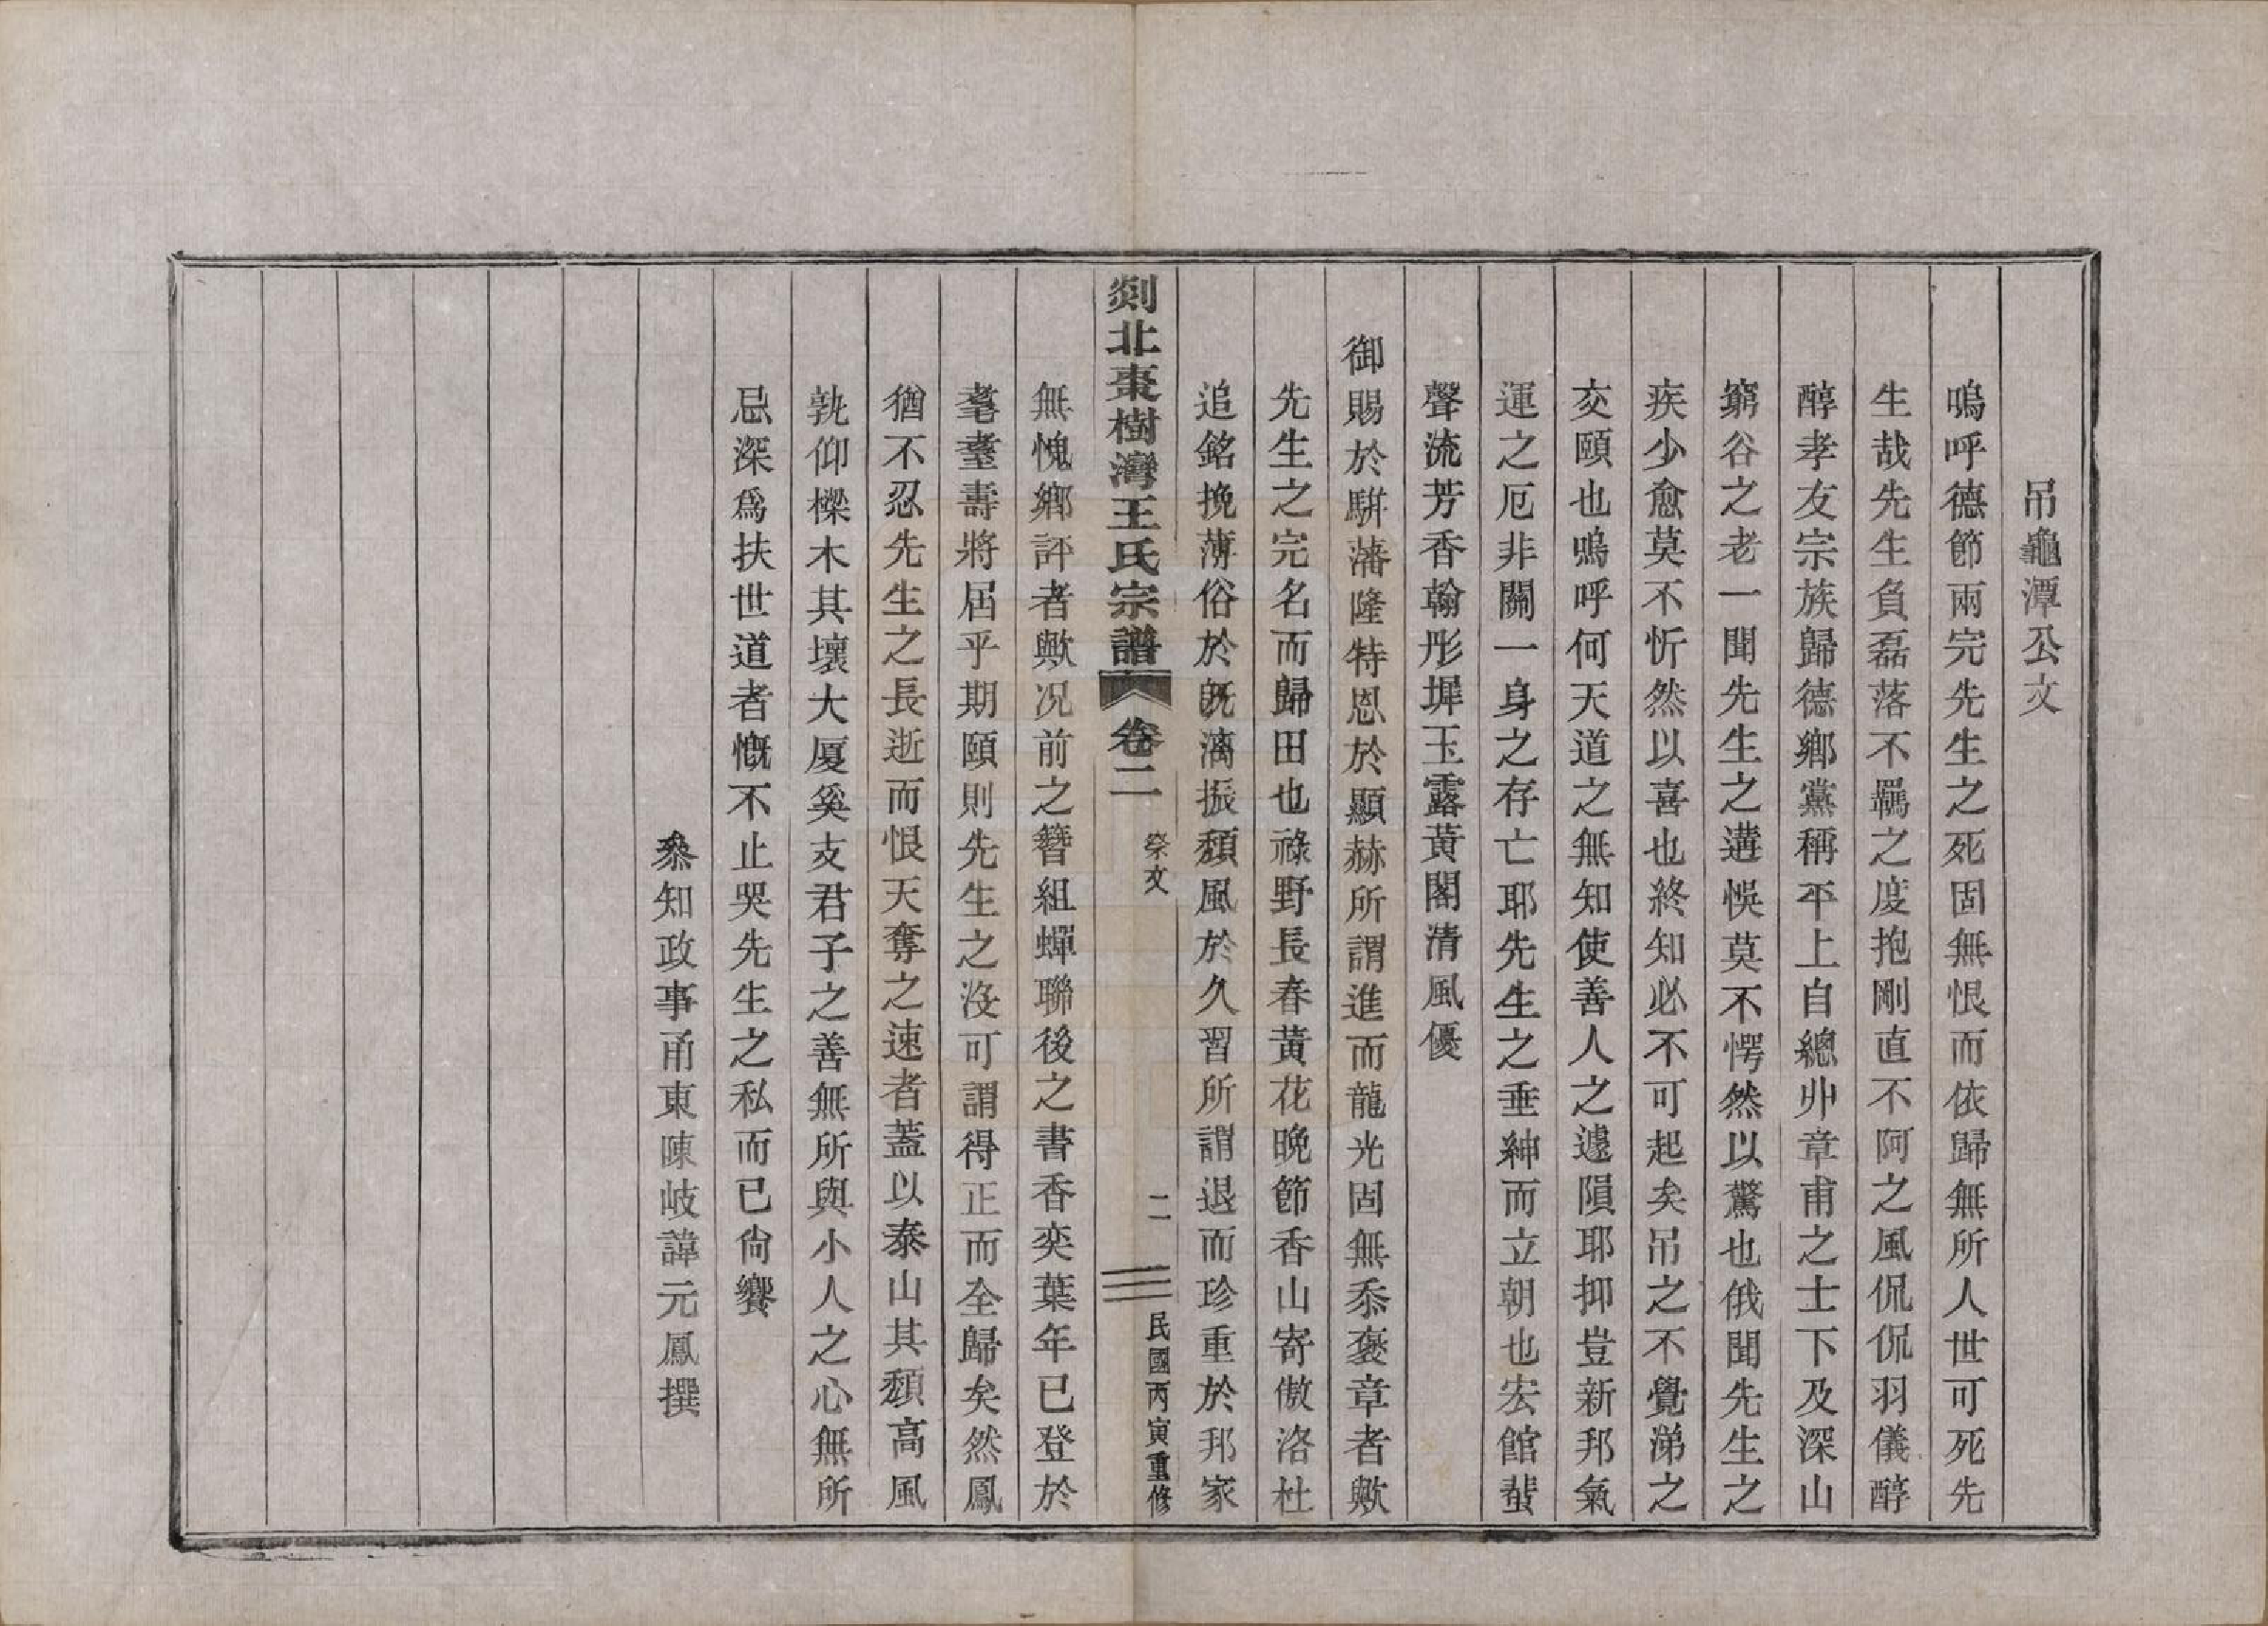 吊龜潭公文
嗚呼德節兩完先生之死固無恨而依歸無所人世可死先
生哉先生負磊落不羈之度抱剛直不阿之風侃侃羽儀醇
醇孝友宗族歸德鄉黨稱平上自總丱章甫之士下及深山
窮谷之老一聞先生之遘悞莫不愕然以驚也俄聞先生之
疾少愈莫不忻然以喜也終知必不可起矣吊之不覺涕之
交頤也嗚呼何天道之無知使善人之遽隕耶抑豈新邦氣
運之厄非關一身之存亡耶先生之垂紳而立朝也宏館蜚
聲流芳香翰彤墀玉露黃閣清風優
御賜於駢藩隆特恩於顯赫所謂進而龍光固無忝褒章者歟
先生之完名而歸田也祿野長春黃花晚節香山寄傲洛社
追銘挽薄俗於旣漓振頽風於久習所謂退而珍重於邦家
剡北棗樹灣王氏宗譜 卷二 祭文 二 民國丙寅重修
無愧鄉評者歟況前之簪組蟬聯後之書香奕葉年已登於
耄耋壽將屆乎期頤則先生之沒可謂得正而全歸矣然鳳
猶不忍先生之長逝而恨天奪之速者蓋以泰山其頽高風
孰仰樑木其壞大厦奚支君子之善無所與小人之心無所
忌深爲扶世道者慨不止哭先生之私而已尙饗
叅知政事甬東陳岐諱元鳳撰